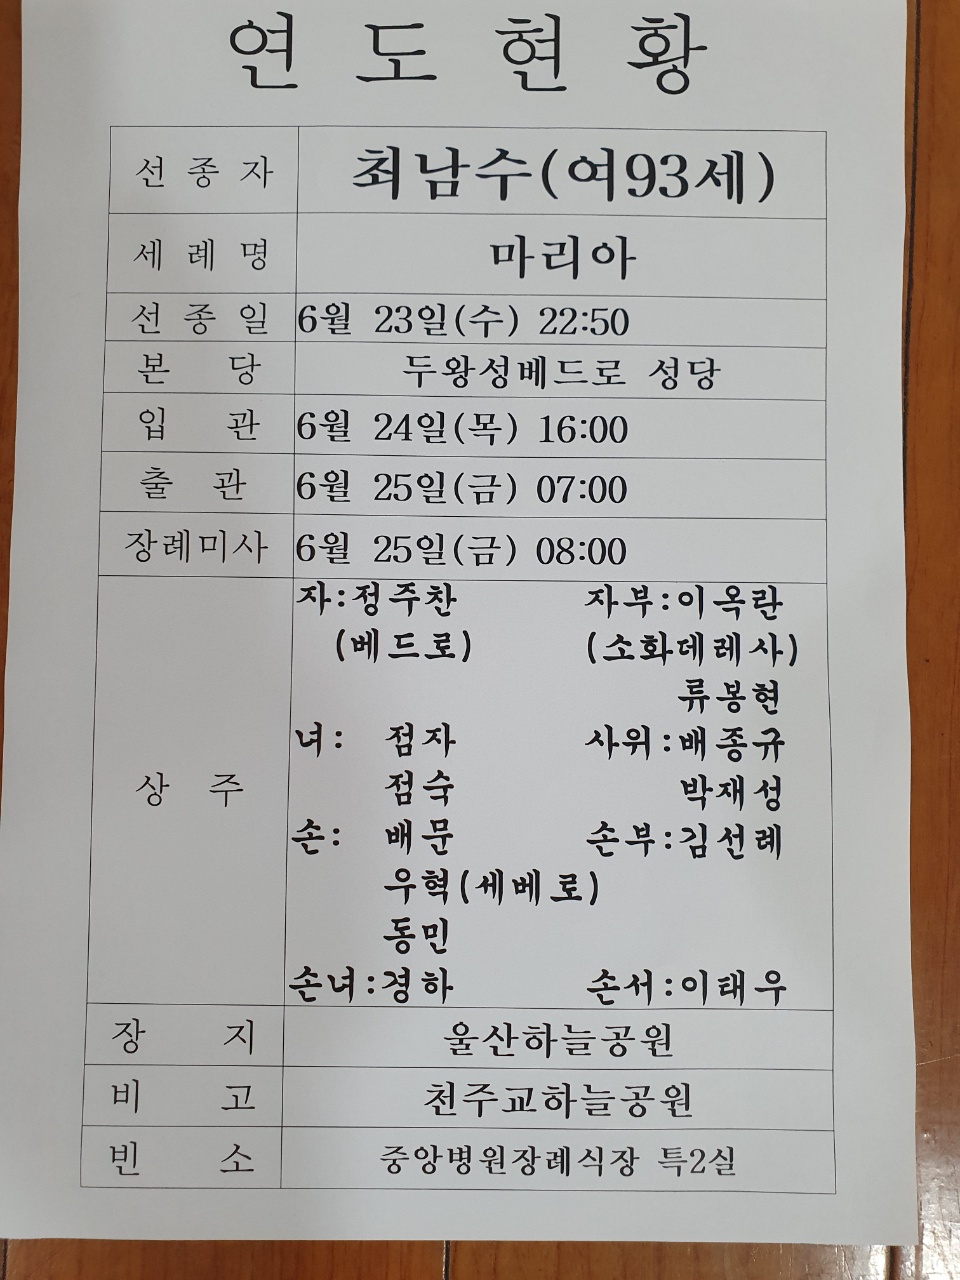 연 도 현 황
선 종 자 최남수(여93세)
세 례 명 마리아
선 종 일 6월 23일(수) 22:50
본 당 두왕성베드로 성당
입 관 6월 24일(목) 16:00
출 관 6월 25일(금) 07:00
장례미사 6월 25일(금) 08:00
상 주
자:정주찬 자부:이옥란
(베드로) (소화데레사)
류봉현
녀: 점자 사위:배종규
점숙 박재성
손: 배문 손부:김선례
우혁(세베로)
동민
손녀:경하 손서:이태우
장 지 울산하늘공원
비 고 천주교하늘공원
빈 소 중앙병원장례식장 특2실